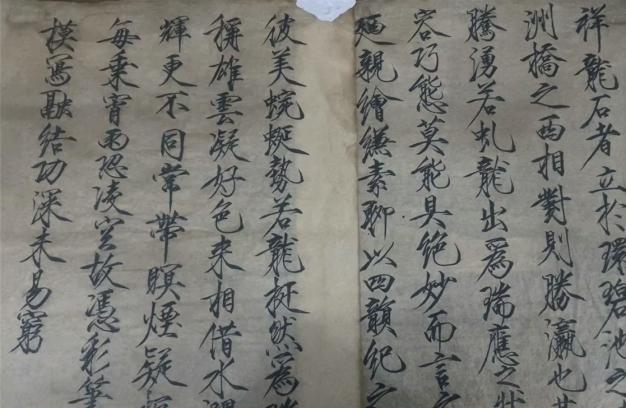 祥龍石者立於環碧池之
洲橋之西相對則勝瀛也其
騰湧若虬龍出為瑞應之狀
容巧態莫能具絕妙而言之
親繪縑素聊以四韻紀之
彼美蜿蜒勢若龍挺然為瑞
稱雄雲凝好色来相借水潤
輝更不同常帶暝煙疑振
每乗宵雨恐凌空故憑彩筆
模寫融結功深未易窮